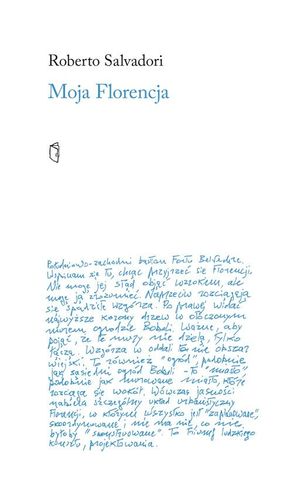 Roberto Salvadori
Moja Florencja
Południowo-zachodni bastion Fortu Belvedere.
Wspinam się tu, chcąc przyjrzeć się Florencji.
Nie mogę jej stąd objąć wzrokiem, ale
mogę ją zrozumieć. Naprzeciw rozciągają
się spadziste wzgórza. Po prawej widać
najwyższe korony drzew w otoczonym
murem ogrodzie Boboli. Ważne, aby
pojąć, że te mury nie dzielą, tylko
łączą. Wzgórza w oddali to nie obszar
wiejski. To również "ogród", podobnie
jak sąsiedni ogród Boboli - to "miasto"
podobnie jak murowane miasto, które
rozciąga się wokół. Wówczas jasności
nabiera szczególny układ urbanistyczny
Florencji, w którym wszystko jest "zaplanowane",
skoordynowane i nie ma nic, co nie
byłoby "skonstruowane". To triumf ludzkiego
kunsztu, projektowania.